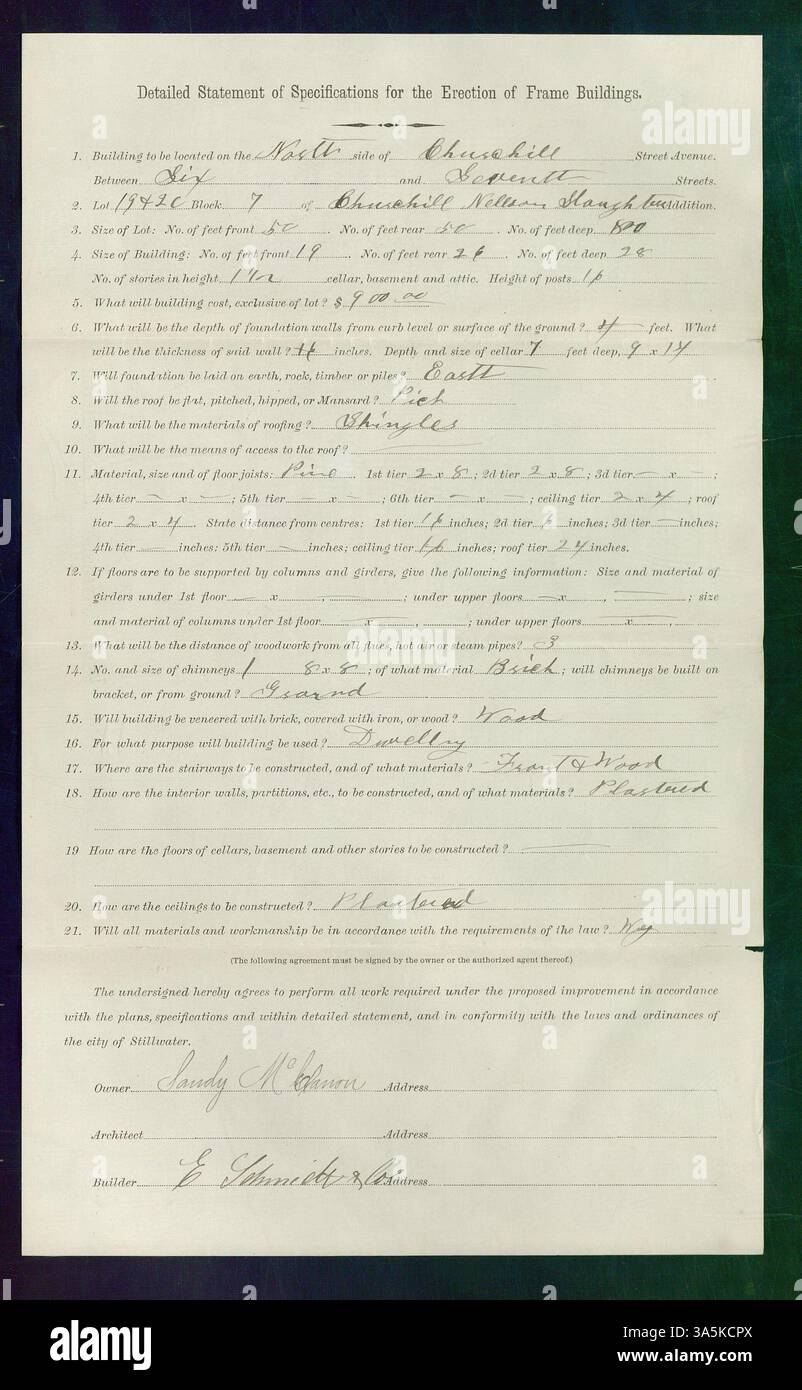 Detailed Statement of Specifications for the Erection of Frame Buildings.
1. Building to be located on the North side of Churchill Street Avenue.
Between Six and Seventh Streets.
2. Lot 19 & 20 Block 7 of Churchill Nellson Slaughter Addition.
3. Size of Lot: No. of feet front 50. No. of feet rear 50. No. of feet deep
4. Size of Building: No. of feet front 19. No. of feet rear 26. No. of feet deep 28
No. of stories in height, 1 1/2 cellar, basement and attic. Height of posts 16
5. What will building cost, exclusive of lot? $ 900.00
6. What will be the depth of foundation walls from curb level or surface of the ground? 4 feet. What
will be the thickness of said wall? inches. Depth and size of cellar 7 feet deep, 9 x 14
7. Will foundation be laid on earth, rock, timber or piles? Eartt
8. Will the roof be flat, pitched, hipped, or Mansard? Pich
9. What will be the materials of roofing? Shingles
10. What will be the means of access to the roof? —
11. Material, size and of floor joists: Pine. 1st tier 2 x 8; 2d tier 2 x 8; 3d tier — x —;
4th tier — x —; 5th tier — x —; 6th tier — x —; ceiling tier 2 x 4; roof
tier 2 x 4. State distance from centres: 1st tier 16 inches; 2d tier inches; 3d tier — inches;
4th tier — inches: 5th tier — inches; ceiling tier 16 inches; roof tier 24 inches.
12. If floors are to be supported by columns and girders, give the following information: Size and material of
girders under 1st floor — x, —; under upper floors — x, —; size
and material of columns under 1st floor — x, —; under upper floors — x,
13. What will be the distance of woodwork from all flues, hot air or steam pipes? 3
14. No. and size of chimneys 1 8 x 8; of what material Brick; will chimneys be built on
bracket, or from ground? Grarnd
15. Will building be veneered with brick, covered with iron, or wood? Wood
16. For what purpose will building be used? Dwelling
17. Where are the stairways to be constructed, and of what materials? Front & Wood
18. How are the interior walls, partitions, etc., to be constructed, and of what materials? Plastered
19 How are the floors of cellars, basement and other stories to be constructed? —
20. How are the ceilings to be constructed? Plastered
21. Will all materials and workmanship be in accordance with the requirements of the law?
(The following agreement must be signed by the owner or the authorized agent thereof.)
The undersigned hereby agrees to perform all work required under the proposed improvement in accordance
with the plans, specifications and within detailed statement, and in conformity with the laws and ordinances of
the city of Stillwater.
Owner Sandy Address
Architect Address
Builder E Schmidt & Co. Address
alamy
Image ID: 3A5KCPX
www.alamy.com